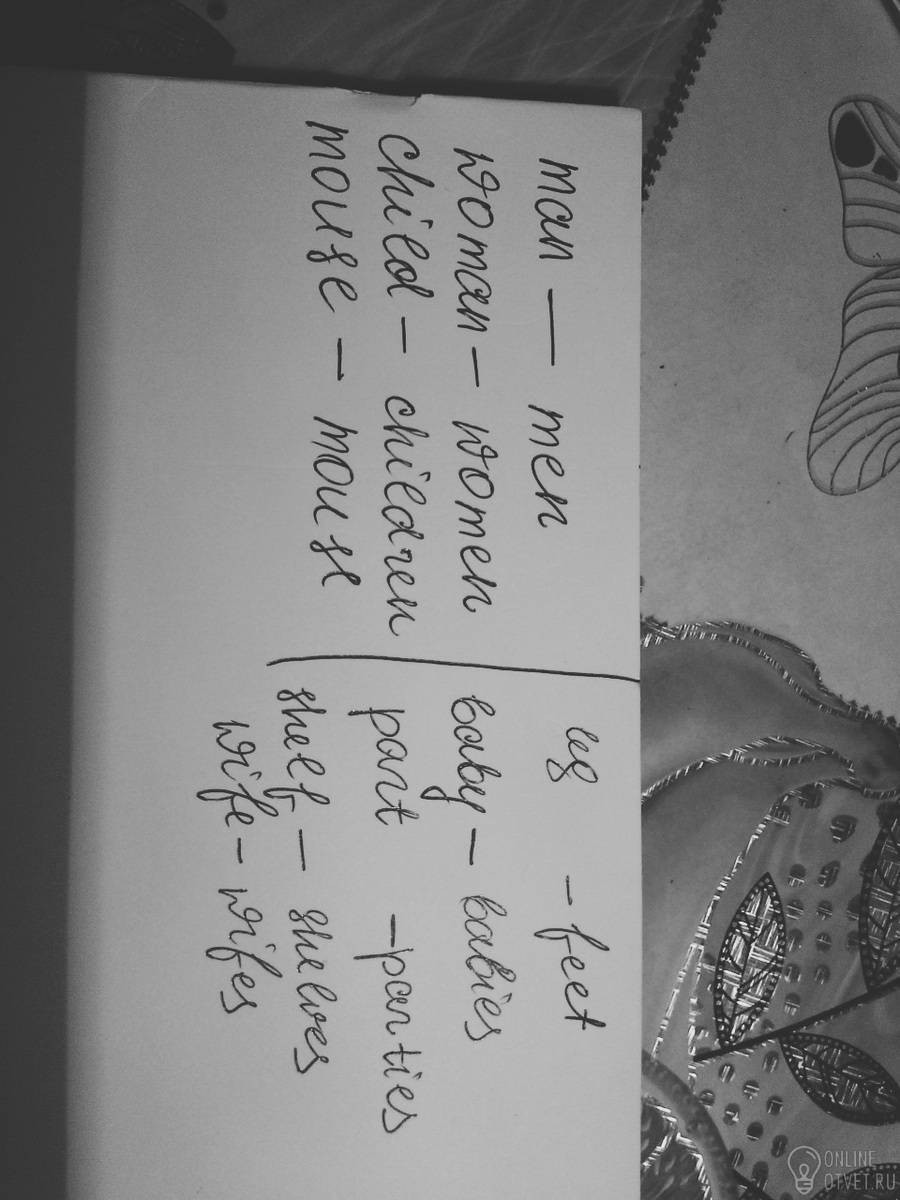 man — men
woman — women
child — children
mouse — mouse
leg — feet
baby — babies
part — parties
shelf — shelves
wife — wifes
ONLINE
OTVET.RU